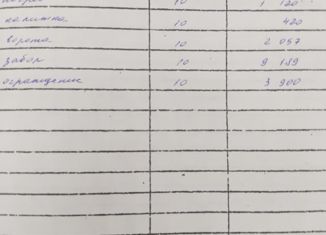 погреб 10 1 120
калитка 10 420
ворота 10 2 057
забор 10 9 189
ограждение 10 3 900